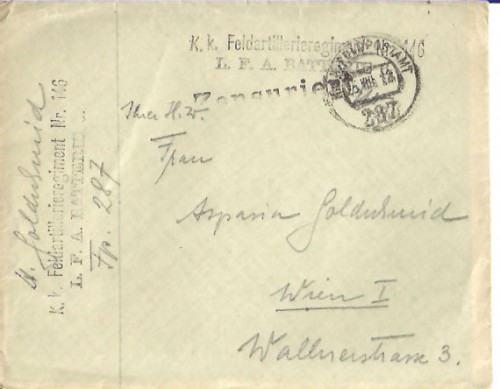 K. k. Feldartillerieregiment Nr. 146
L. F. A. BATTERIE
Zensuriert
287
Ihrer H. W.
Frau
Aspasia Goldschmid
Wien I
Wallnerstrasse 3.
Goldschmid
K. k. Feldartillerieregiment Nr. 146
L. F. A. BATTERIE
Fp. 287